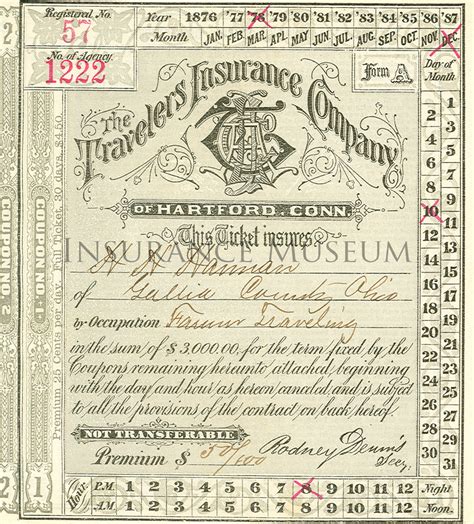 Registered No. Year 1876 '77 '78 '79 '80 '81 '82 '83 '84 '85 '86 '87
57 Month JAN. FEB. MAR. APR. MAY JUN. JUL. AUG. SEP. OCT. NOV. DEC.
No. of Agency.
1222
Form A
Day of Month
The Travelers Insurance Company
OF HARTFORD, CONN.
INSURANCE MUSEUM
This Ticket insures
of Gallia County Ohio
by Occupation Farmer Traveling
in the sum of $3,000.00, for the term fixed by the
Coupons remaining hereunto attached, beginning
with the day and hour as hereon canceled, and is subject
to all the provisions of the contract on back hereof.
NOT TRANSFERABLE
Premium $ 50/100 Rodney Dennis
Secy.
Hour. P.M. 1 2 3 4 5 6 7 8 9 10 11 12 Night
A.M. 1 2 3 4 5 6 7 8 9 10 11 12 Noon.
1
2 3
4 5
6 7
8 9
10 11
12 13
14 15
16 17
18 19
20 21
22 23
24 25
26 27
28 29
30 31
COUPON NO. 2
COUPON NO. 1
2
2
1